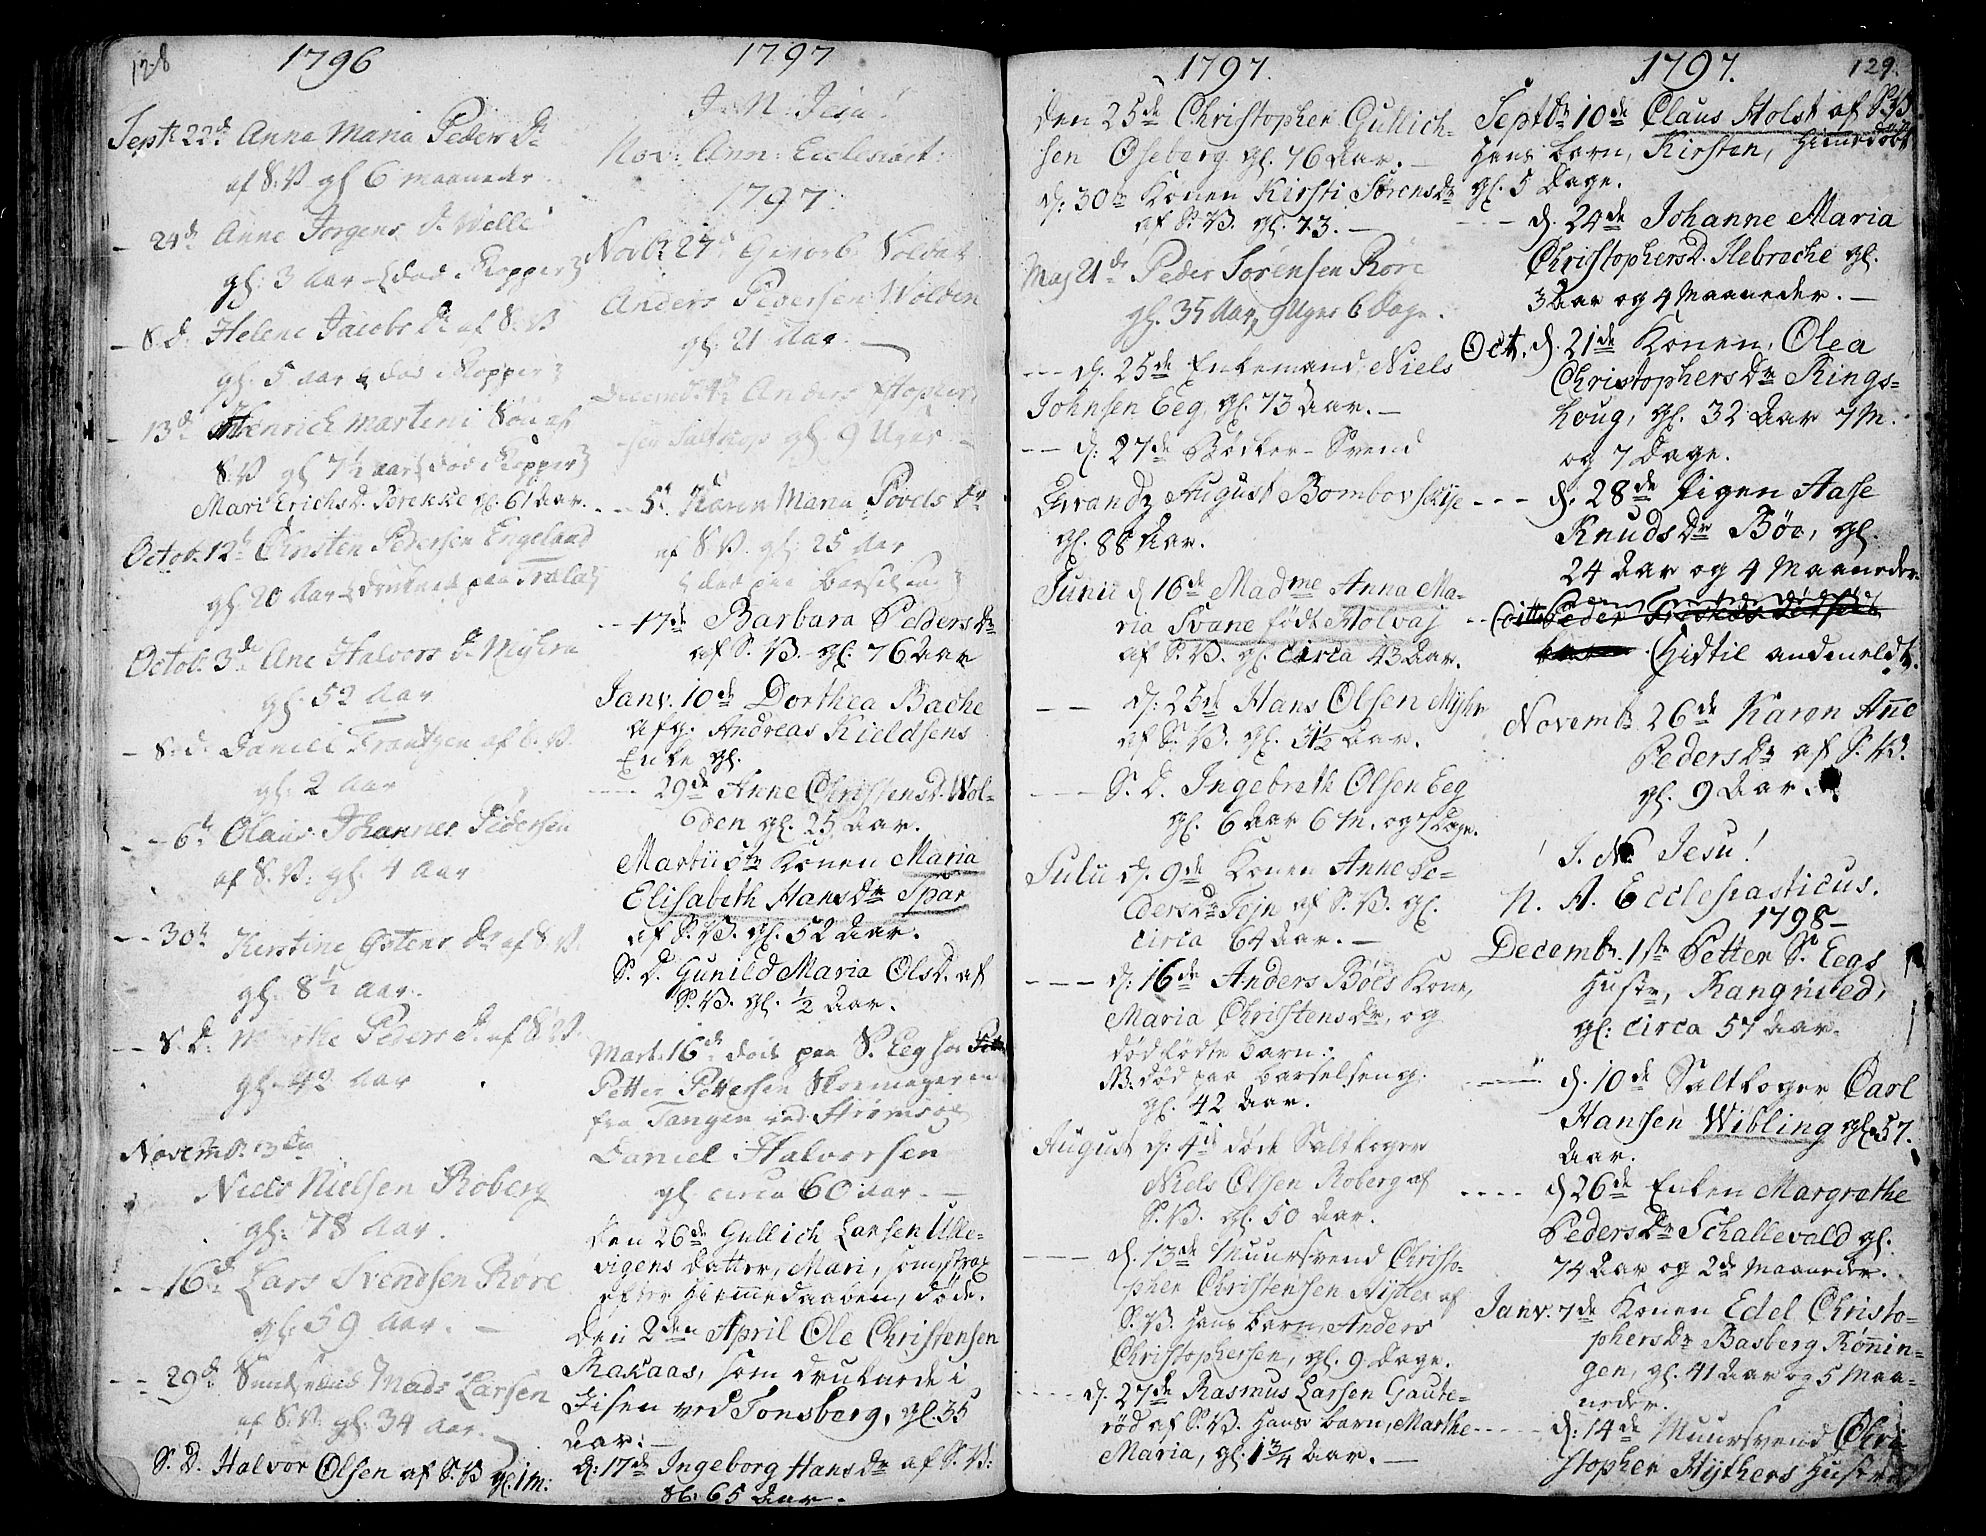 128
1796
Sept: 22d Anna Maria Peders Dr
af S.V gl 6 maaneder.
- 24de Anne Jorgens D. Welle
gl: 3 Aar (død Kopper)
- S.d. Helene Jacobs Dr af S.V
gl. 5 aar (død Kopper)
- 13d Henrich Martini Søn af
S.V gl 7½ aar (død Kopper)
Mari Erichs D. gl. 61 Aar.
Octob. 12t Christen Pedersen Engeland
gl. 20 Aar (druknet paa
Octob. 3de Ane Halvors Dr Myhra
gl. 53 Aar
- S.d. Daniel Frantzen af S.V.
gl. 2 aar
- - 6t Olaus Johannes Pedersen
af S.V. gl. 4 Aar
- - 30t Kirstine Ostens Dr af S.V.
gl. 8½ aar.
- - S.d. Marthe Peders Dr af S.V.
gl. 42 Aar
Novemb. 13de
Niels Nielsen Roberg
gl: 78 Aar.
- - 16d Lars Svendsen Röre
gl. 59 Aar.
- - 29d Mads Larsen
af S.V. gl. 34 Aar.
S.D. Halvor Olsen af S.V gl. 1 m:
1797
J: N: Jesu!
Nov: Ann: Ecclesiast:
1797.
Novb: 27d Gevorb: Soldat
Anders Iversen Wolden
gl. 21 Aar.
Decemb. 4de Anders Xstopher-
sen gl. 9 Uger
- - 5t Karen Maria Povels Dr
af S.V. gl. 25 Aar
(død paa Barselseng)
- - 17de Barbara Peders Dr
af S.V. gl. 76 Aar
Janv. 10de Dorthea Bache
afg. Andreas Kieldsens
Enke gl.
- - - 29de Anne Christens D. Wol-
den gl. 25 Aar.
Martii 5te Konen Maria
Elisabeth Hans Dr Spar
af S.V. gl. 52 Aar.
S.D. Gunild Maria Ols D. af
S.V. gl. ½ Aar.
Mart. 16de død paa S. Eeg hos
Petter Pettersen Skoemager en
fra Tangen ved Strømsøe
Daniel Halvorsen
gl. circa 60 aar.
Den 26de Gullich Larsen Ulle-
vigens datter, Mari, som strax
efter Hiemmedaaben, døde.
Den 2den April Ole Christensen
Rakaas, som druknede i
ved Tonsberg, gl. 35
Aar.
d. 17de Ingeborg Hans Dr af S.V.
gl. 65 Aar.
1797.
Den 25de Christopher Gullich-
sen Oseberg gl. 76 Aar.
d. 30te Konen Kirsti Sørens Dr
af S.V. gl. 73.
Maj 21de Peder Sörensen Röre
gl. 35 Aar, 9 Uger 6 Dage.
- - - d. 25de Enkemand Niels
Johnsen Eeg, gl. 73 Aar.
- - d. 27de Bødker-Svend
Frandz August
gl. 88 Aar.
Junii d. 16de Madme Anna Ma-
ria Svane født Holvaj
af S.V. gl. circa 43 Aar.
- - d. 25de Hans Olsen Myhr
af S.V. gl. 31½ Aar.
- - - S.D. Ingebreth Olsen Eeg
gl. 6 Aar 6 M. og 7 Dage.
Julii d. 9de Konen Anne Pe-
ders Dr Tejn af S.V. gl.
circa 64 Aar.
- - - d. 16de Anders Böes Kone,
Maria Christens Dr, og
dødfödte barn.
NB. død paa barselseng.
gl. 42 Aar.
August d. 4de døde Saltkoger
Niels Olsen Roberg af
S.V. gl. 50 Aar.
- - - d. 13de Muursvend Christo-
pher Christensen Hytter af
S.V. Hans barn, Anders
Christophersen, gl. 9 Dage.
- - - d. 27de Rasmus Larsen Gaute-
rød af S.V. Hans barn, Marthe
Maria, gl. 1¾ Aar.
1797. 129.
Septbr 10de Claus Holst af S.V.
Hans barn, Kirsten, Hiemedøbt
gl. 5 Dage.
- - d. 24de Johanne Maria
Christophers D. Slebroche gl.
3 Aar og 4 Maaneder.
Oct. d. 21de Konen, Olea
Christophers Dr Rings-
houg, gl. 32 Aar 7 M.
og 7 Dage.
- - - d. 28de Pigen Aasse
Knuds Dr Böe, gl.
24 Aar og 4 Maaneder.
(Hidtil andmeldt.
Novembr 26de Karen Añe
Peders Dr af S.V.
gl. 9 Aar.
J. N. Jesu!
N. A. Ecclesiasticus.
1798-
Decembr. 1ste Petter S. Eegs
Hustr, Rangnild,
gl. circa 57 Aar.
d. 10de Saltkoger Carl
Hanssen Wibling gl. 57.
Aar.
- - - - d. 26de Enken Margrethe
Peders Dr Schallevald gl.
74 Aar og 2de Maaneder.
Janv. 7de Konen Edel Christo-
phers Dr Basberg Röñin-
gen, gl. 41 Aar og 5 Maa-
neder.
- - - d. 14de Muursvend Chri-
stopher Hythers Hustr